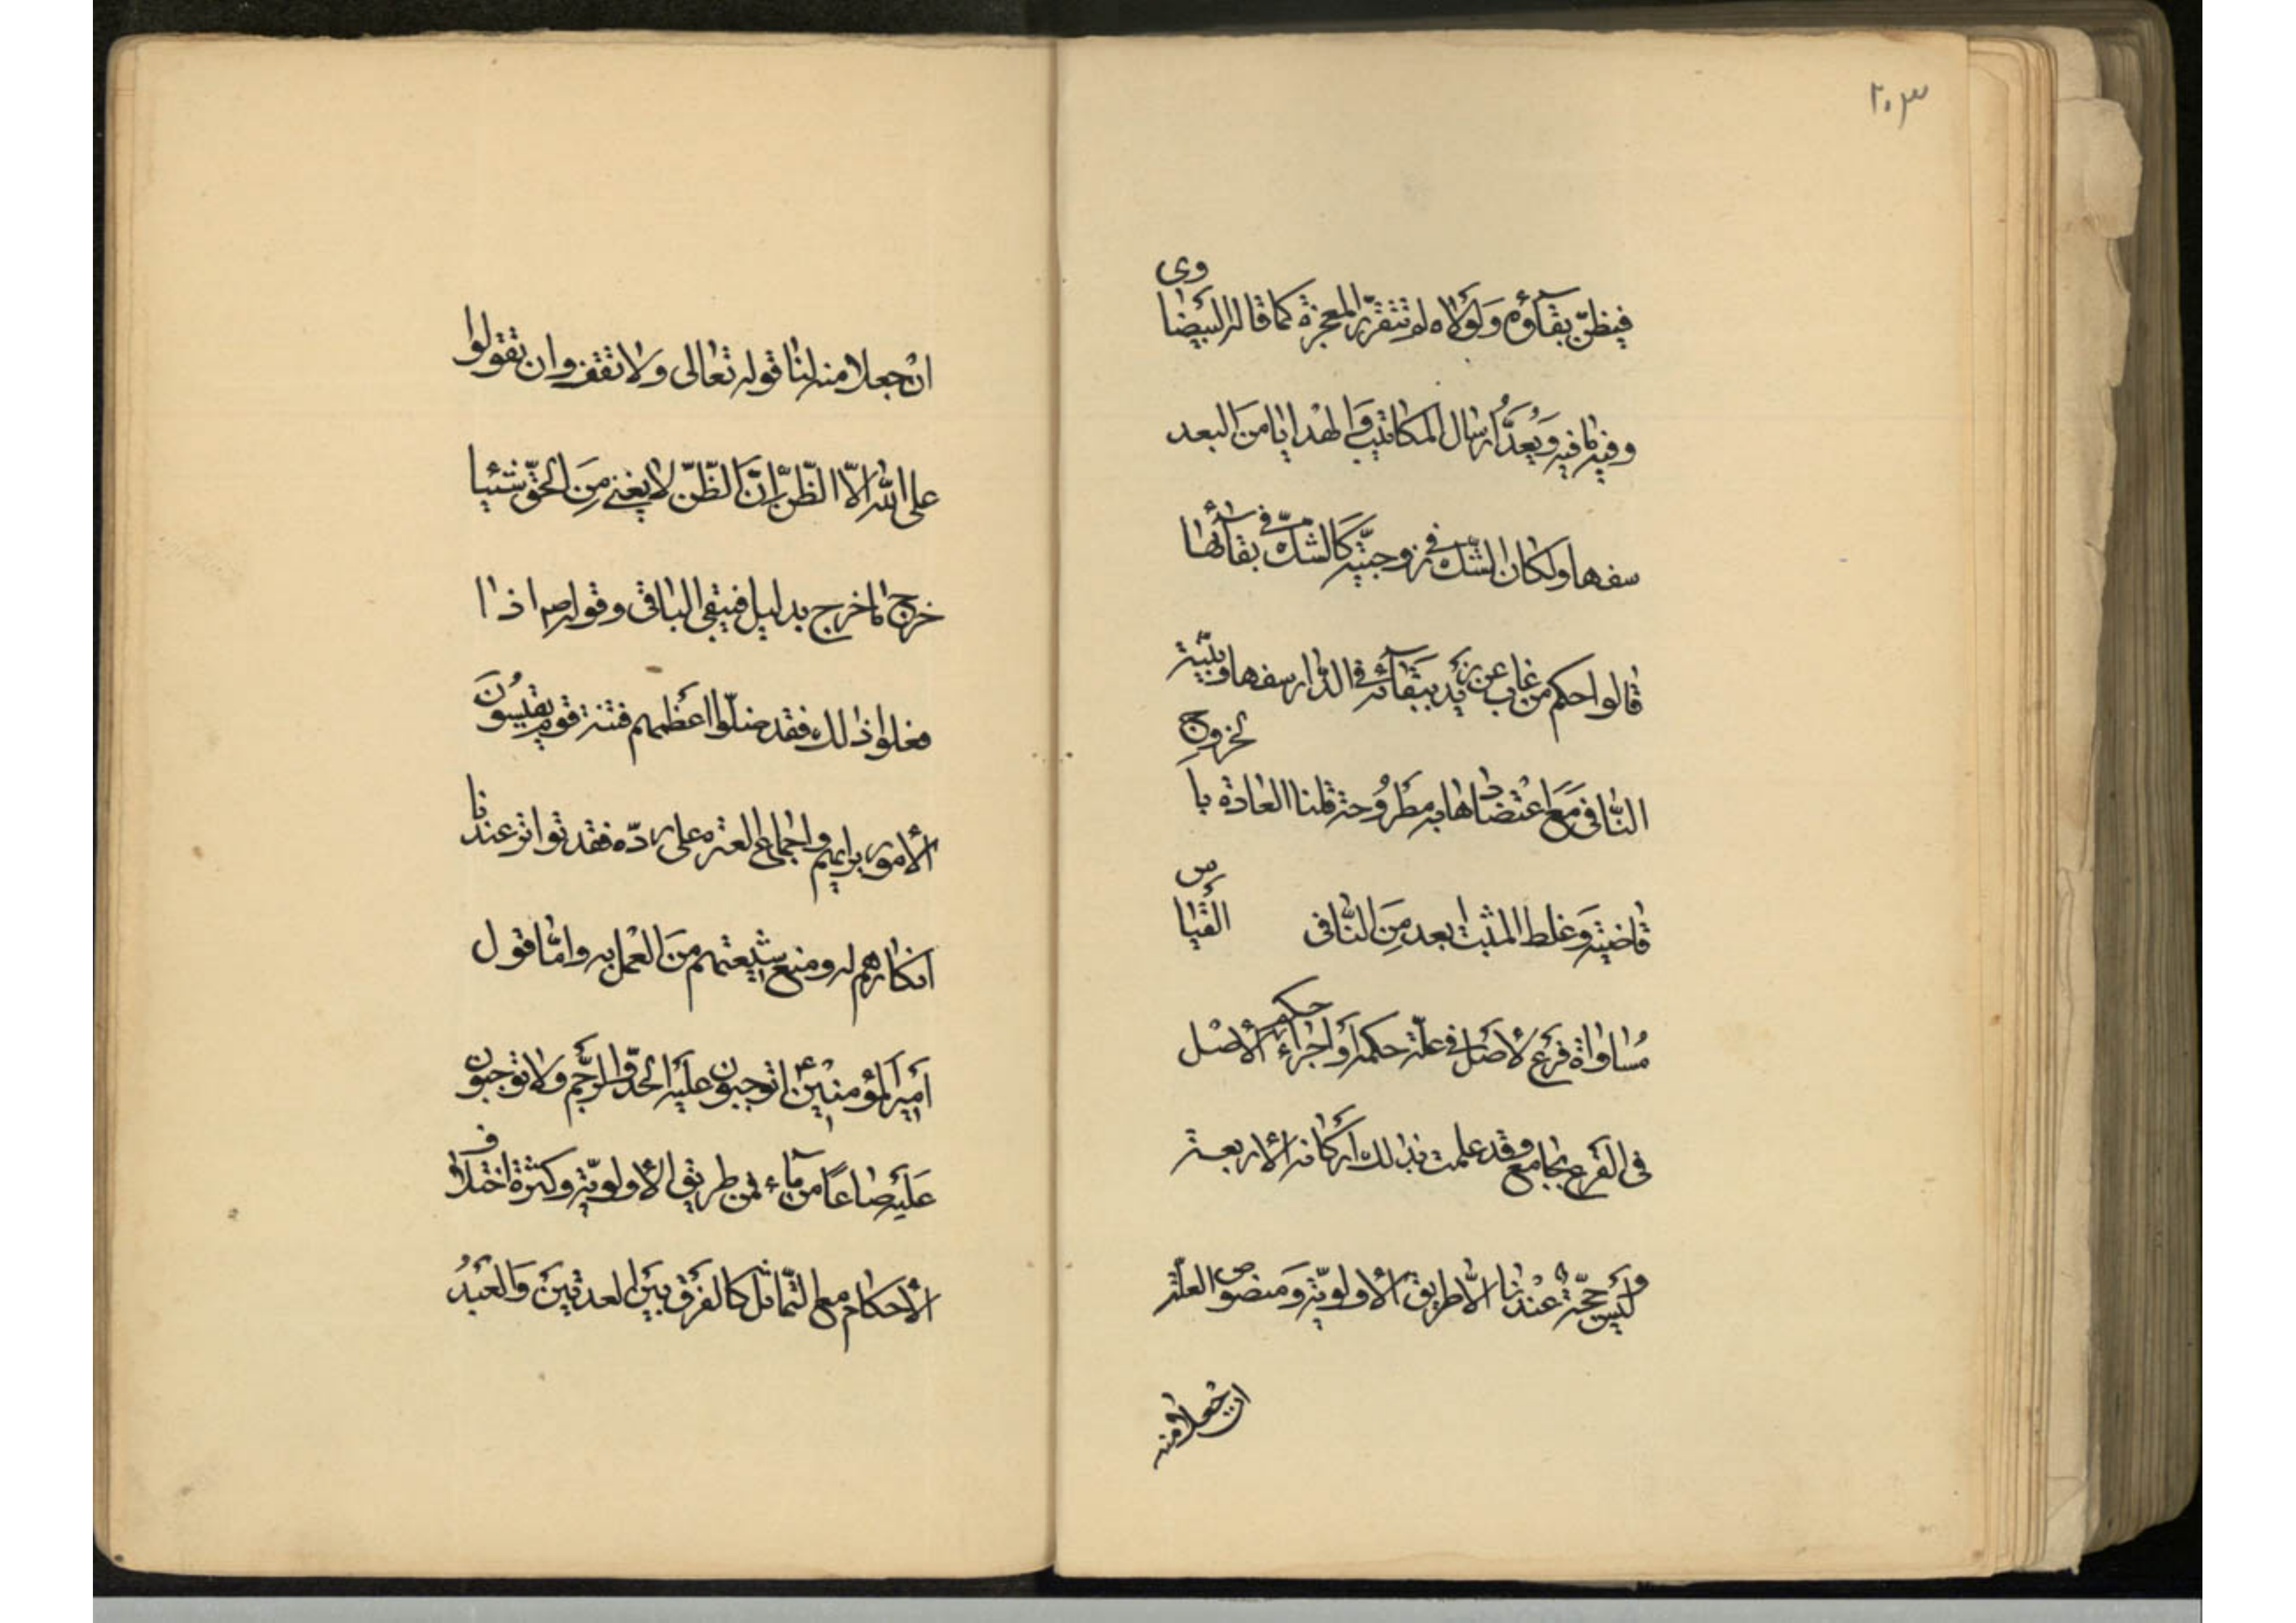 ٢٠٣
فيظنّ بقآؤه وَلَولاه لم تتقرّر المعجزة كما قاله البيضاوى
وفيه ما فيه وَيُعدّ أرسال المكاتيب وَالهْدايا منَ البعد
سفها ولكان الشّك فى زوجيّته كَالشّك فى بقآئها
قالوا حكم من غاب عن زيد ببقآئه فى الدّار سفها وبيّنة
النّافى مَعَ اعْتضادها به مطرُوحة قلنا العادة بالخروج
قاضية وَغلط المثبت ابعد مِنَ النّافى القياس
مُساواة فرَع لأصَل فى علّة حكمه أو اجراء حكم الأصْل
فى الفَرع بجامع وقد علمت بذلك أركانه الأربعة
وليَس حجّة عنْدنا الّا طريق الأولويّة وَمنصوص العلّة
ان جعلا منه
انْ جعلا منه لنا قوله تعالى ولا تقف وان تقولوا
على الله الّا الظّنّ إنَّ الظّنّ لا يغنى مِنَ الحقّ شيئا
خرج ما خرج بدليل فيبقى الباقى وقوله ص اذا
فعلوا ذلك فقد ضلّوا اعظمهم فتنة قوم يقيسُونَ
الأمور برايهم واجماع العترة على ردّه فقد تواتر عندنا
انكارهم له ومنع شيعتهم منَ العْمل به وامّا قول
أميَر المؤمنيْن ع اتوجبون علَيه الحدّ والرَّجم ولا توجبون
عَليَه صاعًا من مآء فمن طريق الأولويّة وكثرة اختلاف
الأحكام مع التّماثل كالفَرق بيَن العدتينَ وَالعَبدُ